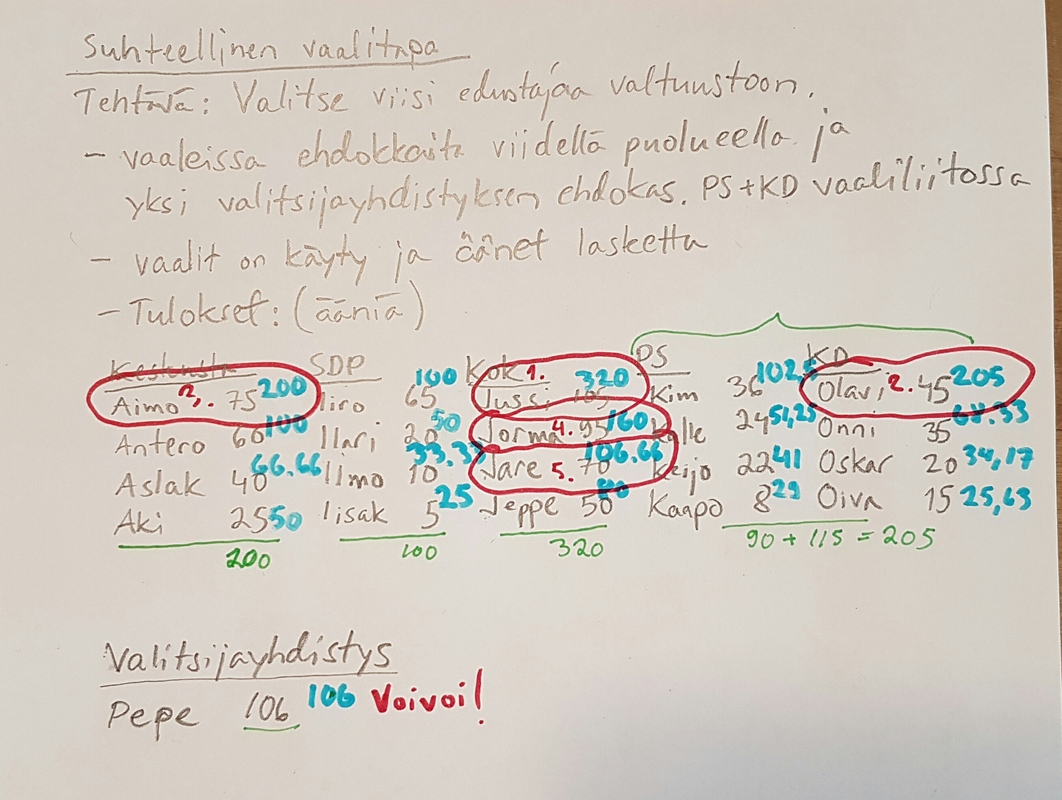 Suhteellinen vaalitapa
Tehtävä: Valitse viisi edustajaa valtuustoon.
- vaaleissa ehdokkaita viidellä puolueella ja
yksi valitsijayhdistyksen ehdokas. PS+KD vaaliliitossa
- vaalit on käyty ja äänet laskettu
- Tulokset: (ääniä)
Keskusta SDP Kok PS KD
Aimo 75 200 Iiro 65 100 Jussi 1. 320 Kim 36 Olavi 2. 45 205
Antero 60 100 Ilari 20 50 Jorma 4. 95 160 Kalle 24 51,25 Onni 35 68.33
Aslak 40 66.66 Ilmo 10 33.33 Jare 5. 70 106.66 Keijo 22 41 Oskar 20 34,17
Aki 25 50 Iisak 5 25 Jeppe 50 80 Kaapo 8 Oiva 15 25,63
200 100 320 90 + 115 = 205
Valitsijayhdistys
Pepe 106 106 Voivoi!